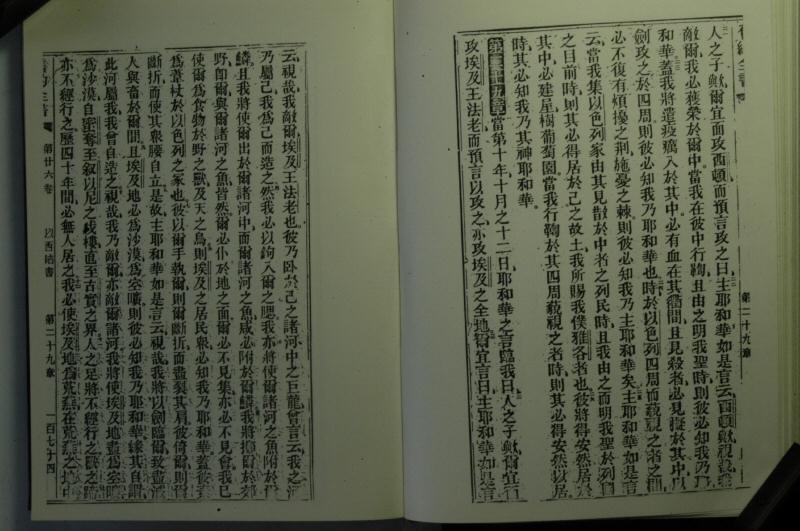 人之子歟爾宜面攻西頓而預言攻之曰主耶和華如是言云西頓歟視哉我
敵爾我必獲榮於爾中當我在彼中行鞫且由之明我聖時則彼必知我乃耶
和華蓋我將遣疫癘入於其中必有血在其衢間且見殺者必見擬於其中以
劍攻之於四周則彼必知我乃耶和華也時於以色列四周而藐視之者之間
必不復有煩擾之荊施憂之棘則彼必知我乃主耶和華矣主耶和華如是言
云當我集以色列家由其見散於中者之列民時且我由之而明我聖於列國
之目前時則其必得居於己之故土我所賜我僕雅各者也彼將得安然居於
其中必建屋樹葡萄園當我行鞫於其四周藐視之者時則其必得安然以居
時其必知我乃其神耶和華
第二十九章當第十年十月之十二日耶和華之言臨我曰人之子歟爾宜面
攻埃及王法老而預言以攻之亦攻埃及之全地爾宜言曰主耶和華如是言
第二十九章
云視哉我敵爾埃及王法老也彼乃臥於己之諸河中之巨龍曾言云我之河
乃屬己我為己而造之然我必以鉤入爾之腮我亦將使爾諸河之魚附於爾
鱗且我將使爾出於爾諸河中而爾諸河之魚咸必附於爾鱗我將擲爾於郊
野即爾與爾諸河之魚皆然爾必仆於地之面爾必不見集亦必不見會我已
使爾為食物於野之獸及天之鳥則埃及之居民眾必知我乃耶和華蓋彼素
為葦杖於以色列之家也彼以爾手執爾則爾斷折而盡裂其肩彼倚爾則爾
斷折而使其眾腰自立是故主耶和華如是言云視哉我將以劍臨爾致盡滅
人與畜於爾間且埃及地必為沙漠為空曠則彼必知我乃耶和華緣其自謂
此河屬我我曾自造之視哉我乃敵爾亦敵爾諸河我將使埃及地盡為空曠
為沙漠自密奪至叙以尼之戍樓直至古實之界人之足將不經行之獸之蹄
亦不經行之歷四十年間必無人居之我必使埃及地為荒蕪在荒蕪之地中
第廿六卷 以西結書 第二十九章 一百七十四